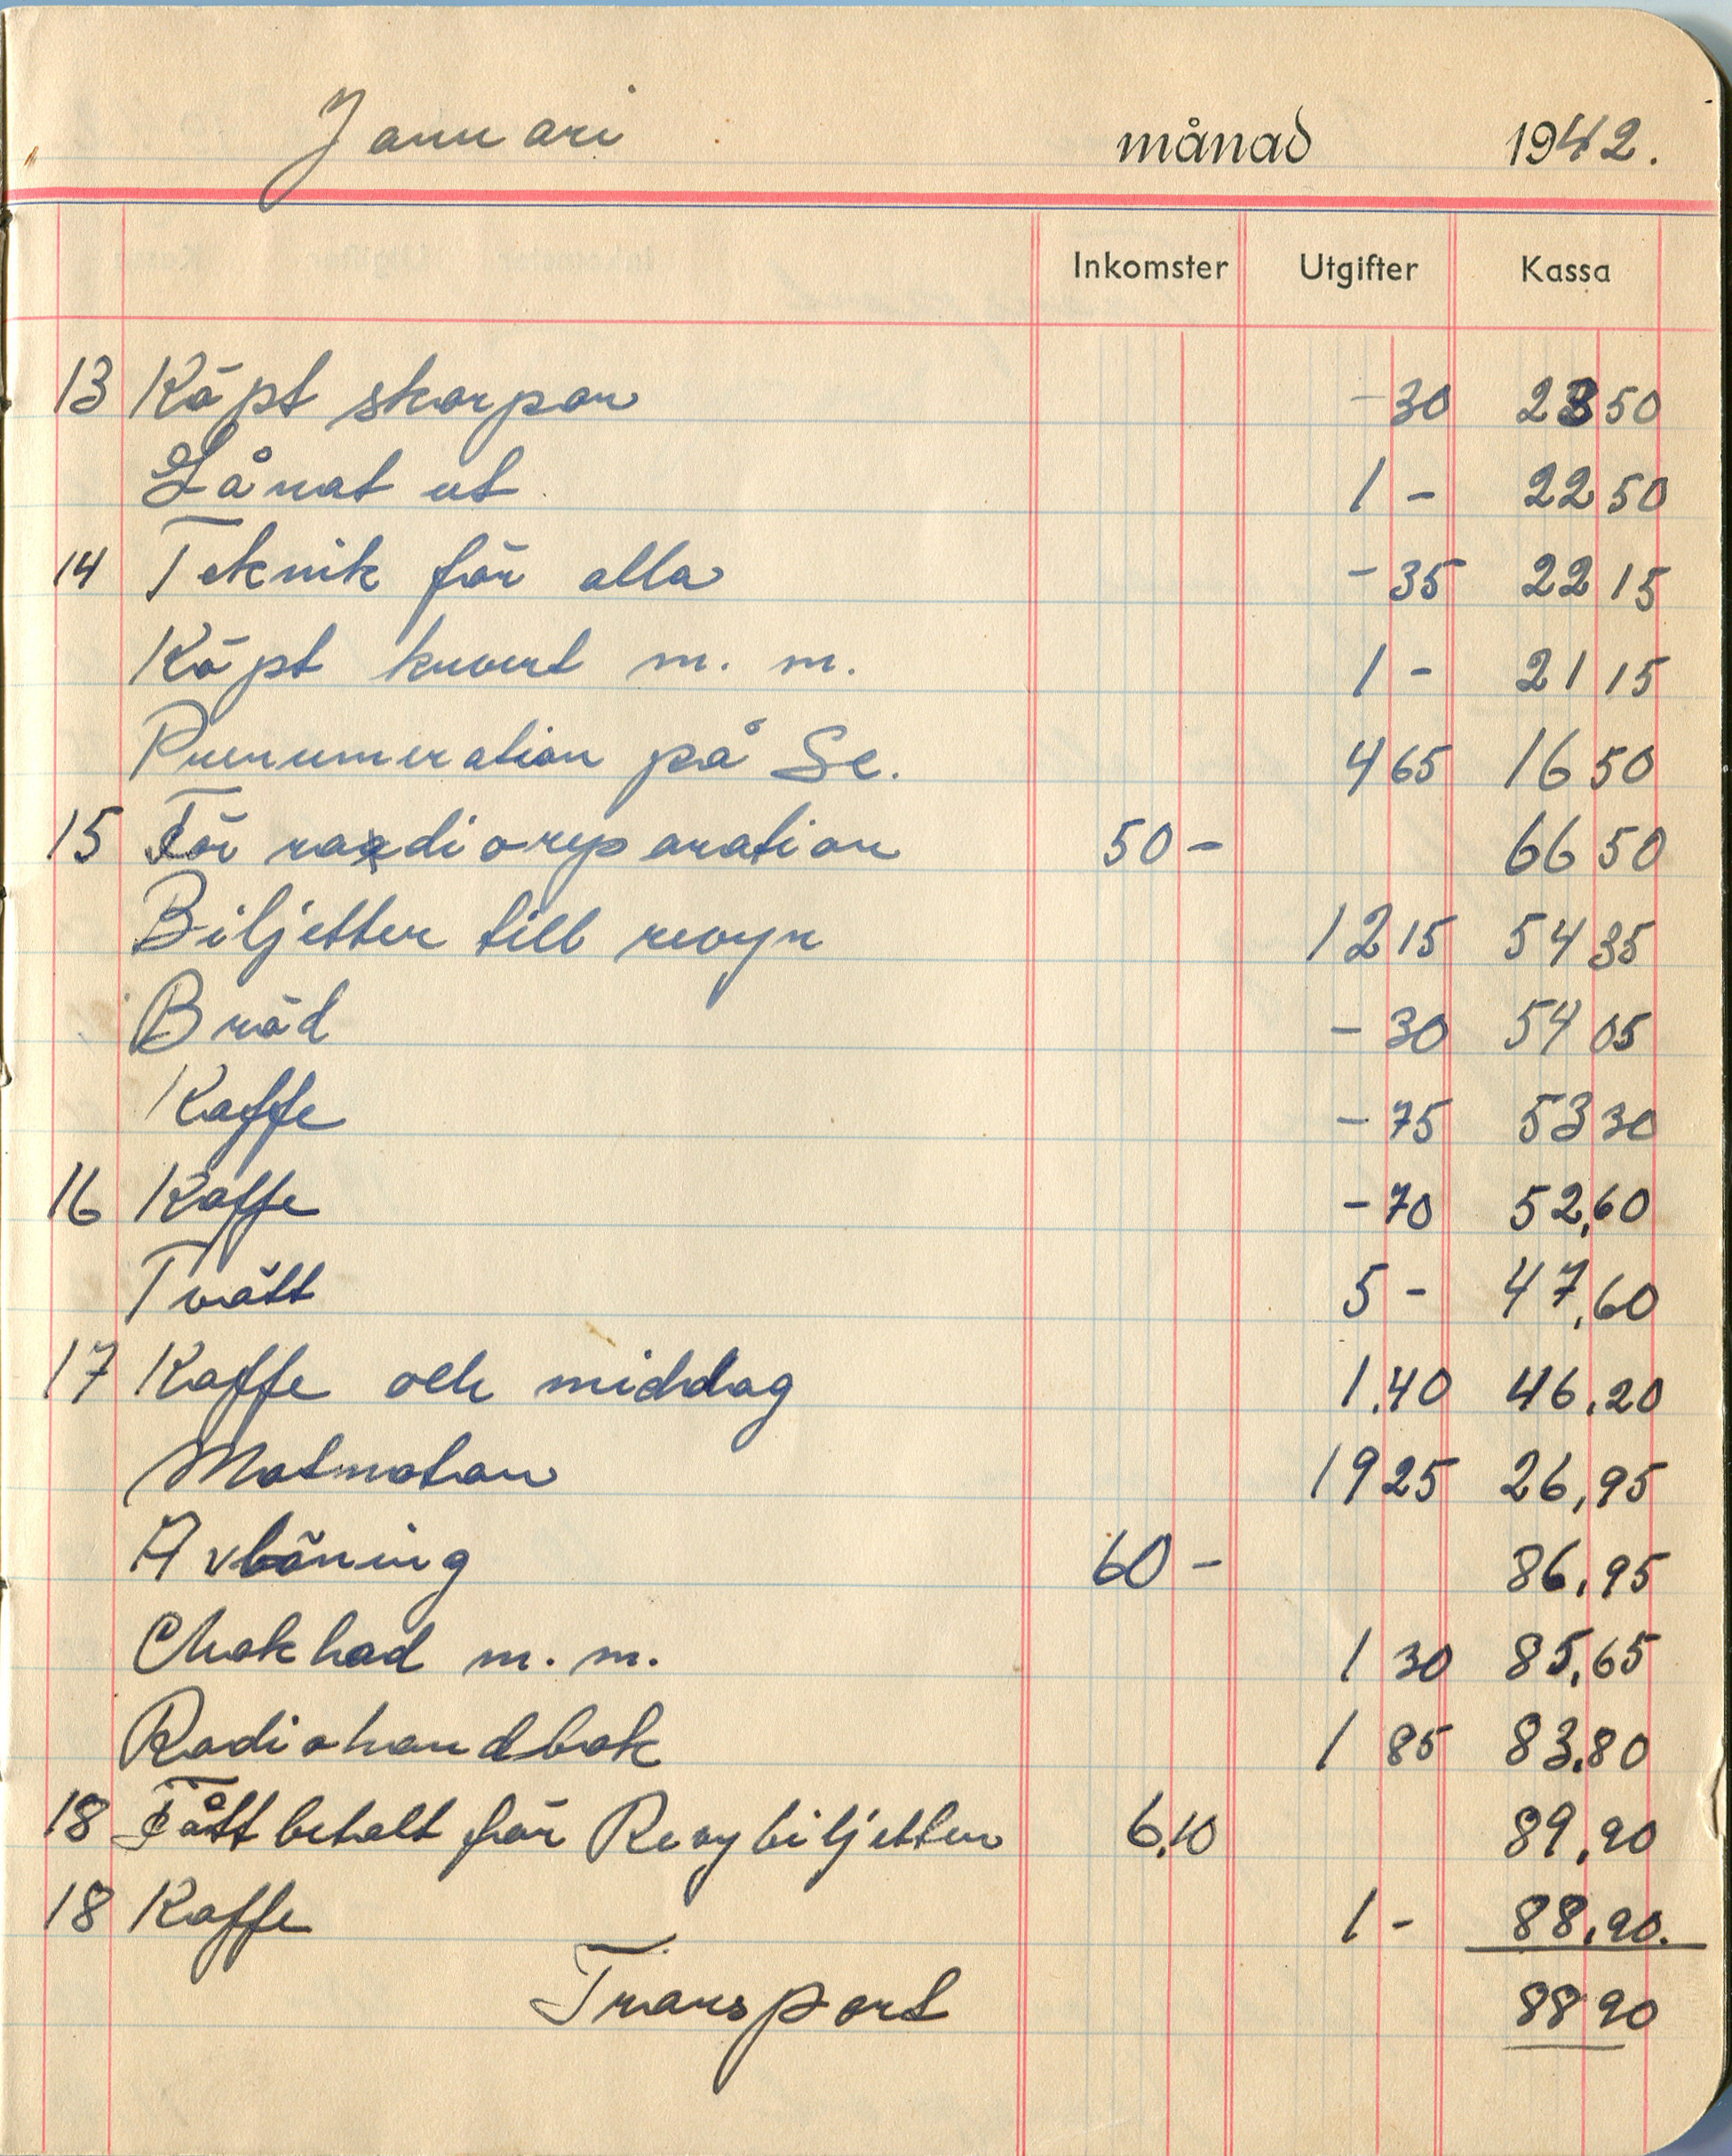 Januari månad 1942.
Inkomster Utgifter Kassa
13 Köpt skorpor -30 23 50
Lånat ut 1 - 22 50
14 Teknik för alla -35 22 15
Köpt kuvert m. m. 1 - 21 15
Prenumeration på Se. 4 65 16 50
15 För radioreparation 50 - 66 50
Biljetter till revyn 12 15 54 35
Bröd - 30 54 05
Kaffe - 75 53 30
16 Kaffe - 70 52,60
Tvätt 5 - 47,60
17 Kaffe och middag 1,40 46,20
Matnotan 19 25 26,95
Avlöning 60 - 86,95
Choklad m. m. 1 30 85,65
Radiohandbok 1 85 83,80
18 Fått betalt för Revybiljetter 6,10 89,90
18 Kaffe 1 - 88,90.
Transport 88 90